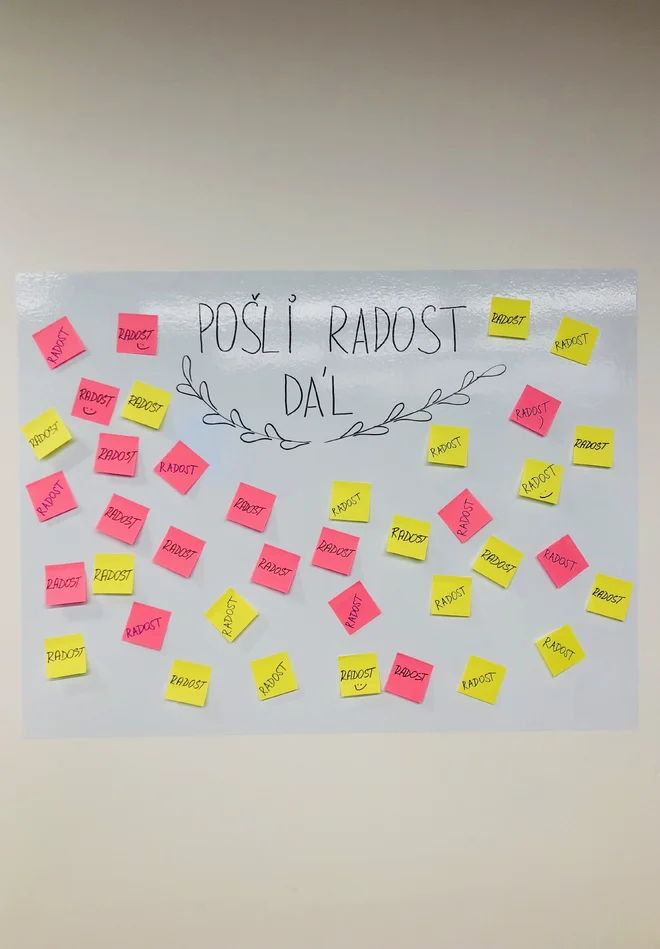 POŠLI RADOST
DÁL
RADOST
RADOST
RADOST
RADOST
RADOST
RADOST
RADOST
RADOST :)
RADOST
RADOST
RADOST
RADOST
RADOST
RADOST
RADOST
RADOST
RADOST
RADOST
RADOST
RADOST
RADOST
RADOST
RADOST
RADOST
RADOST
RADOST
RADOST
RADOST
RADOST
RADOST
RADOST
RADOST
RADOST
RADOST
RADOST
RADOST
RADOST
RADOST